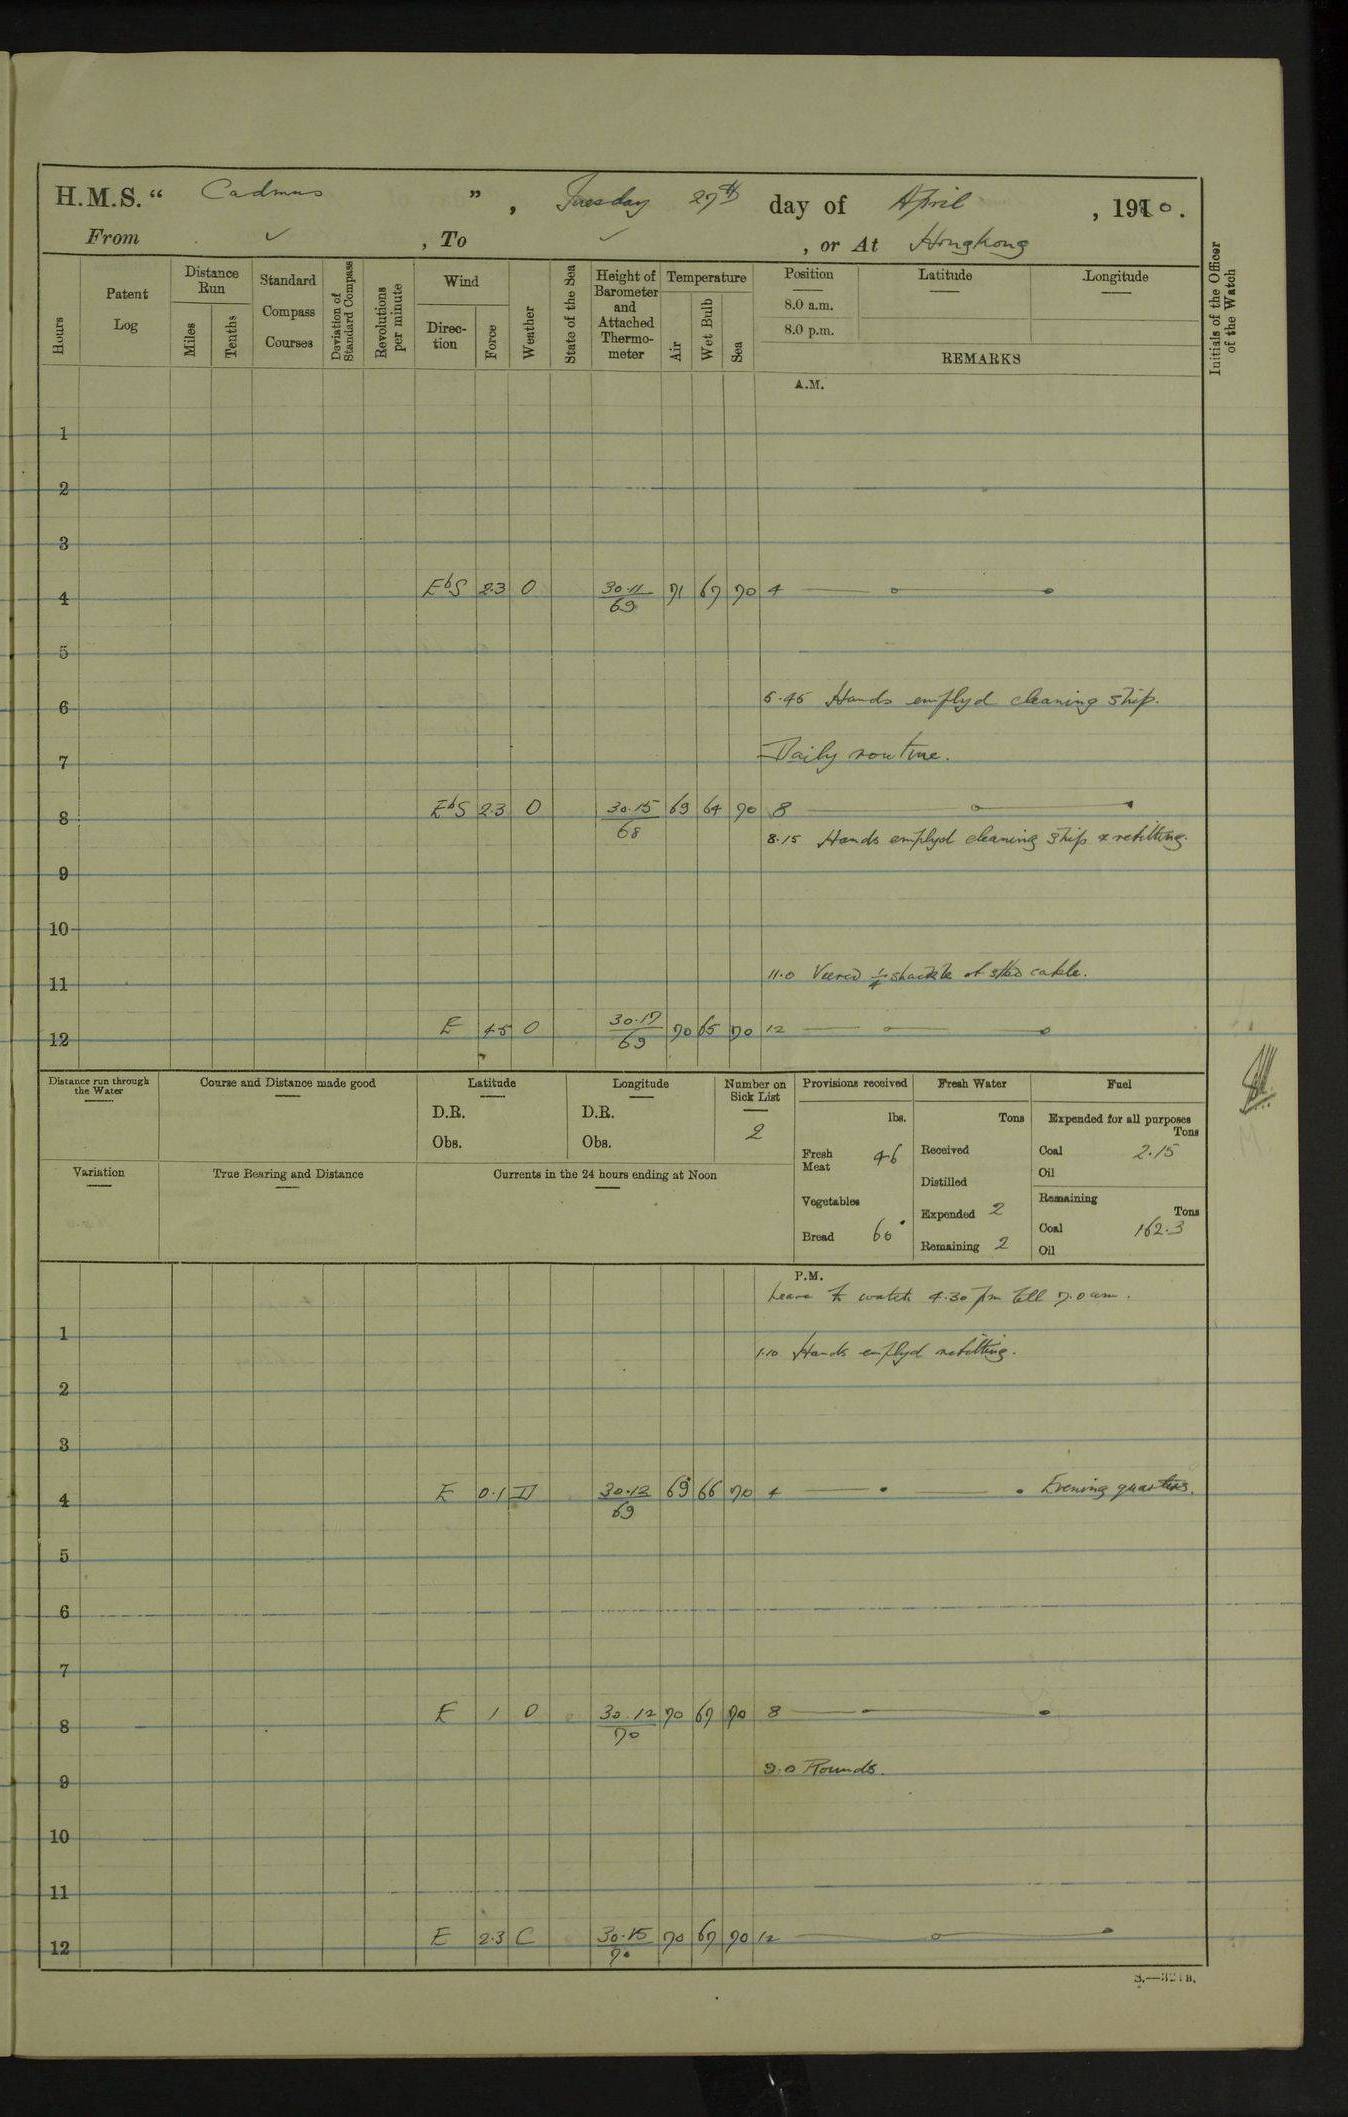 H.M.S. “ Cadmus ” , Tuesday 27th day of April , 1910 .
From ✓ , To ✓ , or At Hongkong
Hours
Patent Log
Distance Run
Miles
Tenths
Standard Compass Courses
Deviation of Standard Compass
Revolutions per minute
Wind
Direc-tion
Force
Weather
State of the Sea
Height of Barometer and Attached Thermo-meter
Temperature
Air
Wet Bulb
Sea
Position
8.0 a.m.
8.0 p.m.
Latitude
Longitude
REMARKS
Initials of the Officer of the Watch
A.M.
1
2
3
4 EbS 2.3 O 30.11/69 71 67 70 4
5
6 5.45 Hands emplyd cleaning ship.
7 Daily routine.
8 EbS 2.3 O 30.15/68 69 64 70 8
8.15 Hands emplyd cleaning ship & refitting.
9
10
11 11.0 Veered ¼ shackle of stbd cable.
12 E 4.5 O 30.17/69 70 65 70 12
Distance run through the Water
Course and Distance made good
Latitude
D.R.
Obs.
Longitude
D.R.
Obs.
Number on Sick List
2
Provisions received
lbs.
Fresh Meat 46
Vegetables
Bread 60
Fresh Water
Tons
Received
Distilled
Expended 2
Remaining 2
Fuel
Expended for all purposes
Tons
Coal 2.15
Oil
Remaining
Tons
Coal 162.3
Oil
Variation
True Bearing and Distance
Currents in the 24 hours ending at Noon
P.M.
Leave to watch 4.30 pm till 7.0 am.
1
1.10 Hands emplyd refitting.
2
3
4 E 0.1 30.12/69 69 66 70 4 Evening quarters.
5
6
7
8 E 1 O 30.12/70 70 67 70 8
9.0 Rounds.
9
10
11
12 E 2.3 C 30.15/70 70 67 70 12
S.—321B.